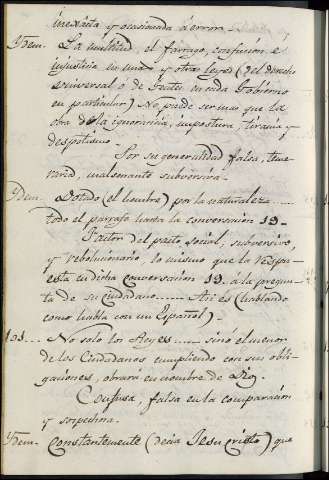 inexacta y ocasionada á error.
Ydem. La multitud, el farrago, confusion e
injusticia en unas y otras leyes (del derecho
universal ó de Gentes en cada Gobierno
en particular) No puede ser mas que la
obra de la ignorancia, impostura, tirania y
despotismo.
Por su generalidad falsa, teme-
raria, malsonante subversiva.
Ydem. Dotado (el hombre) por la naturaleza....
todo el parrafo hasta la conversacion 19.
Fautor del pacto social, subversivo,
y rebolucionario, lo mismo que la respu-
esta en dicha Conversacion 19. á la pregun-
ta de su Ciudadano..... Asi es (hablando
como habla con un Español).
101... No solo los Reyes..... sinó el menor
de los Ciudadanos cumpliendo con sus obli-
gaciones, obrará en nombre de Dios.
Confusa, falsa en la comparacion
y sospechosa.
Ydem. Constantemente (decia Jesu Cristo) que